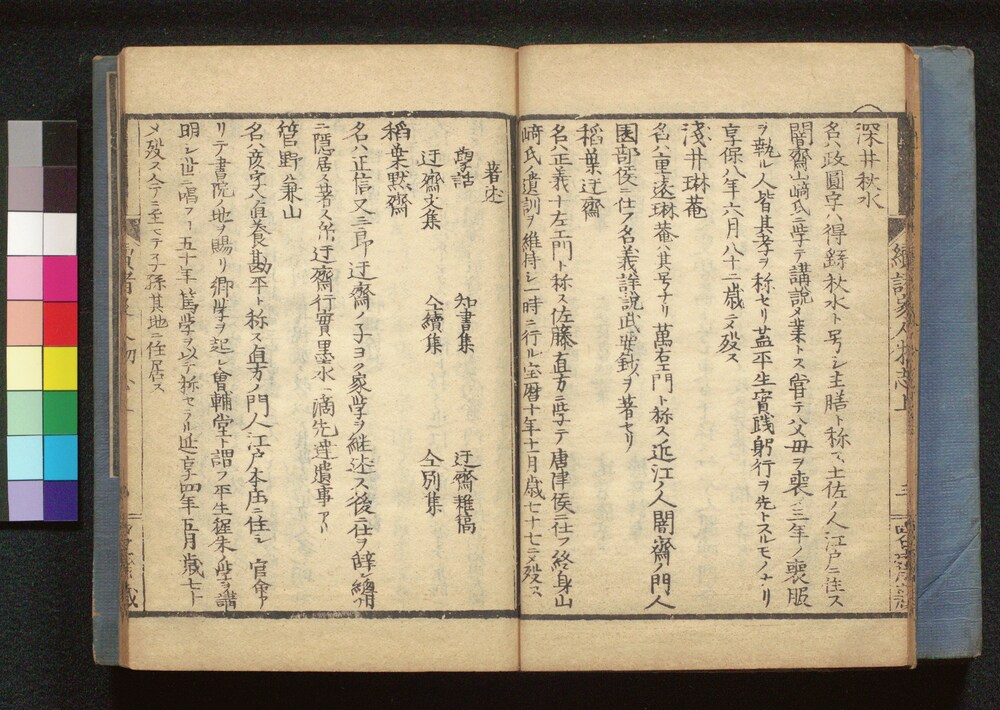 深井秋水
名ハ政圓字ハ得餘秋水ト号シ主膳ト称ス土佐ノ人江戸ニ住ス
闇齋山﨑氏ニ学テ講説ヲ業トス嘗テ父母ヲ喪シ三年ノ喪服
ヲ執ル人皆其孝ヲ称セリ蓋平生實践躬行ヲ先トスルモノナリ
享保八年六月八十二歳ニメ殁ス
淺井琳菴
名ハ重遠琳菴ハ其号ナリ萬右エ門ト称ス近江ノ人闇齋ノ門人
園部侯ニ仕フ名義詳説武鑑鈔ヲ著セリ
稻葉迂齋
名ハ正義十左エ門ト称ス佐藤直方ニ学テ唐津侯ニ仕フ終身山
﨑氏ノ遺訓ヲ維持シ一時ニ行ル宝暦十年十一月歳七十七ニメ殁ス
著述
學話 知書集 迂齋雜稿
迂齋文集 仝續集 仝別集
稻葉黙齋
名ハ正信又三郎迂齋ノ子ヨク家学ヲ継述ス後ニ仕ヲ辞シ総州
ニ隠居ス著ス所迂齋行實墨水一滴先達遺事アリ
菅野兼山
名ハ彦字ハ直養勘平ト称ス直方ノ門人江戸本庄ニ住シ 官命ア
リテ書院ノ地ヲ賜リ郷学ヲ起シ會輔堂ト謂フ平生程朱ノ学ヲ講
明シ世ニ唱フ丁五十年篤学ヲ以テ称セラル延享四年五月歳七十
メ殁ス今ニ至マテ子孫其地ニ住居ス
續諸家人物志上
三